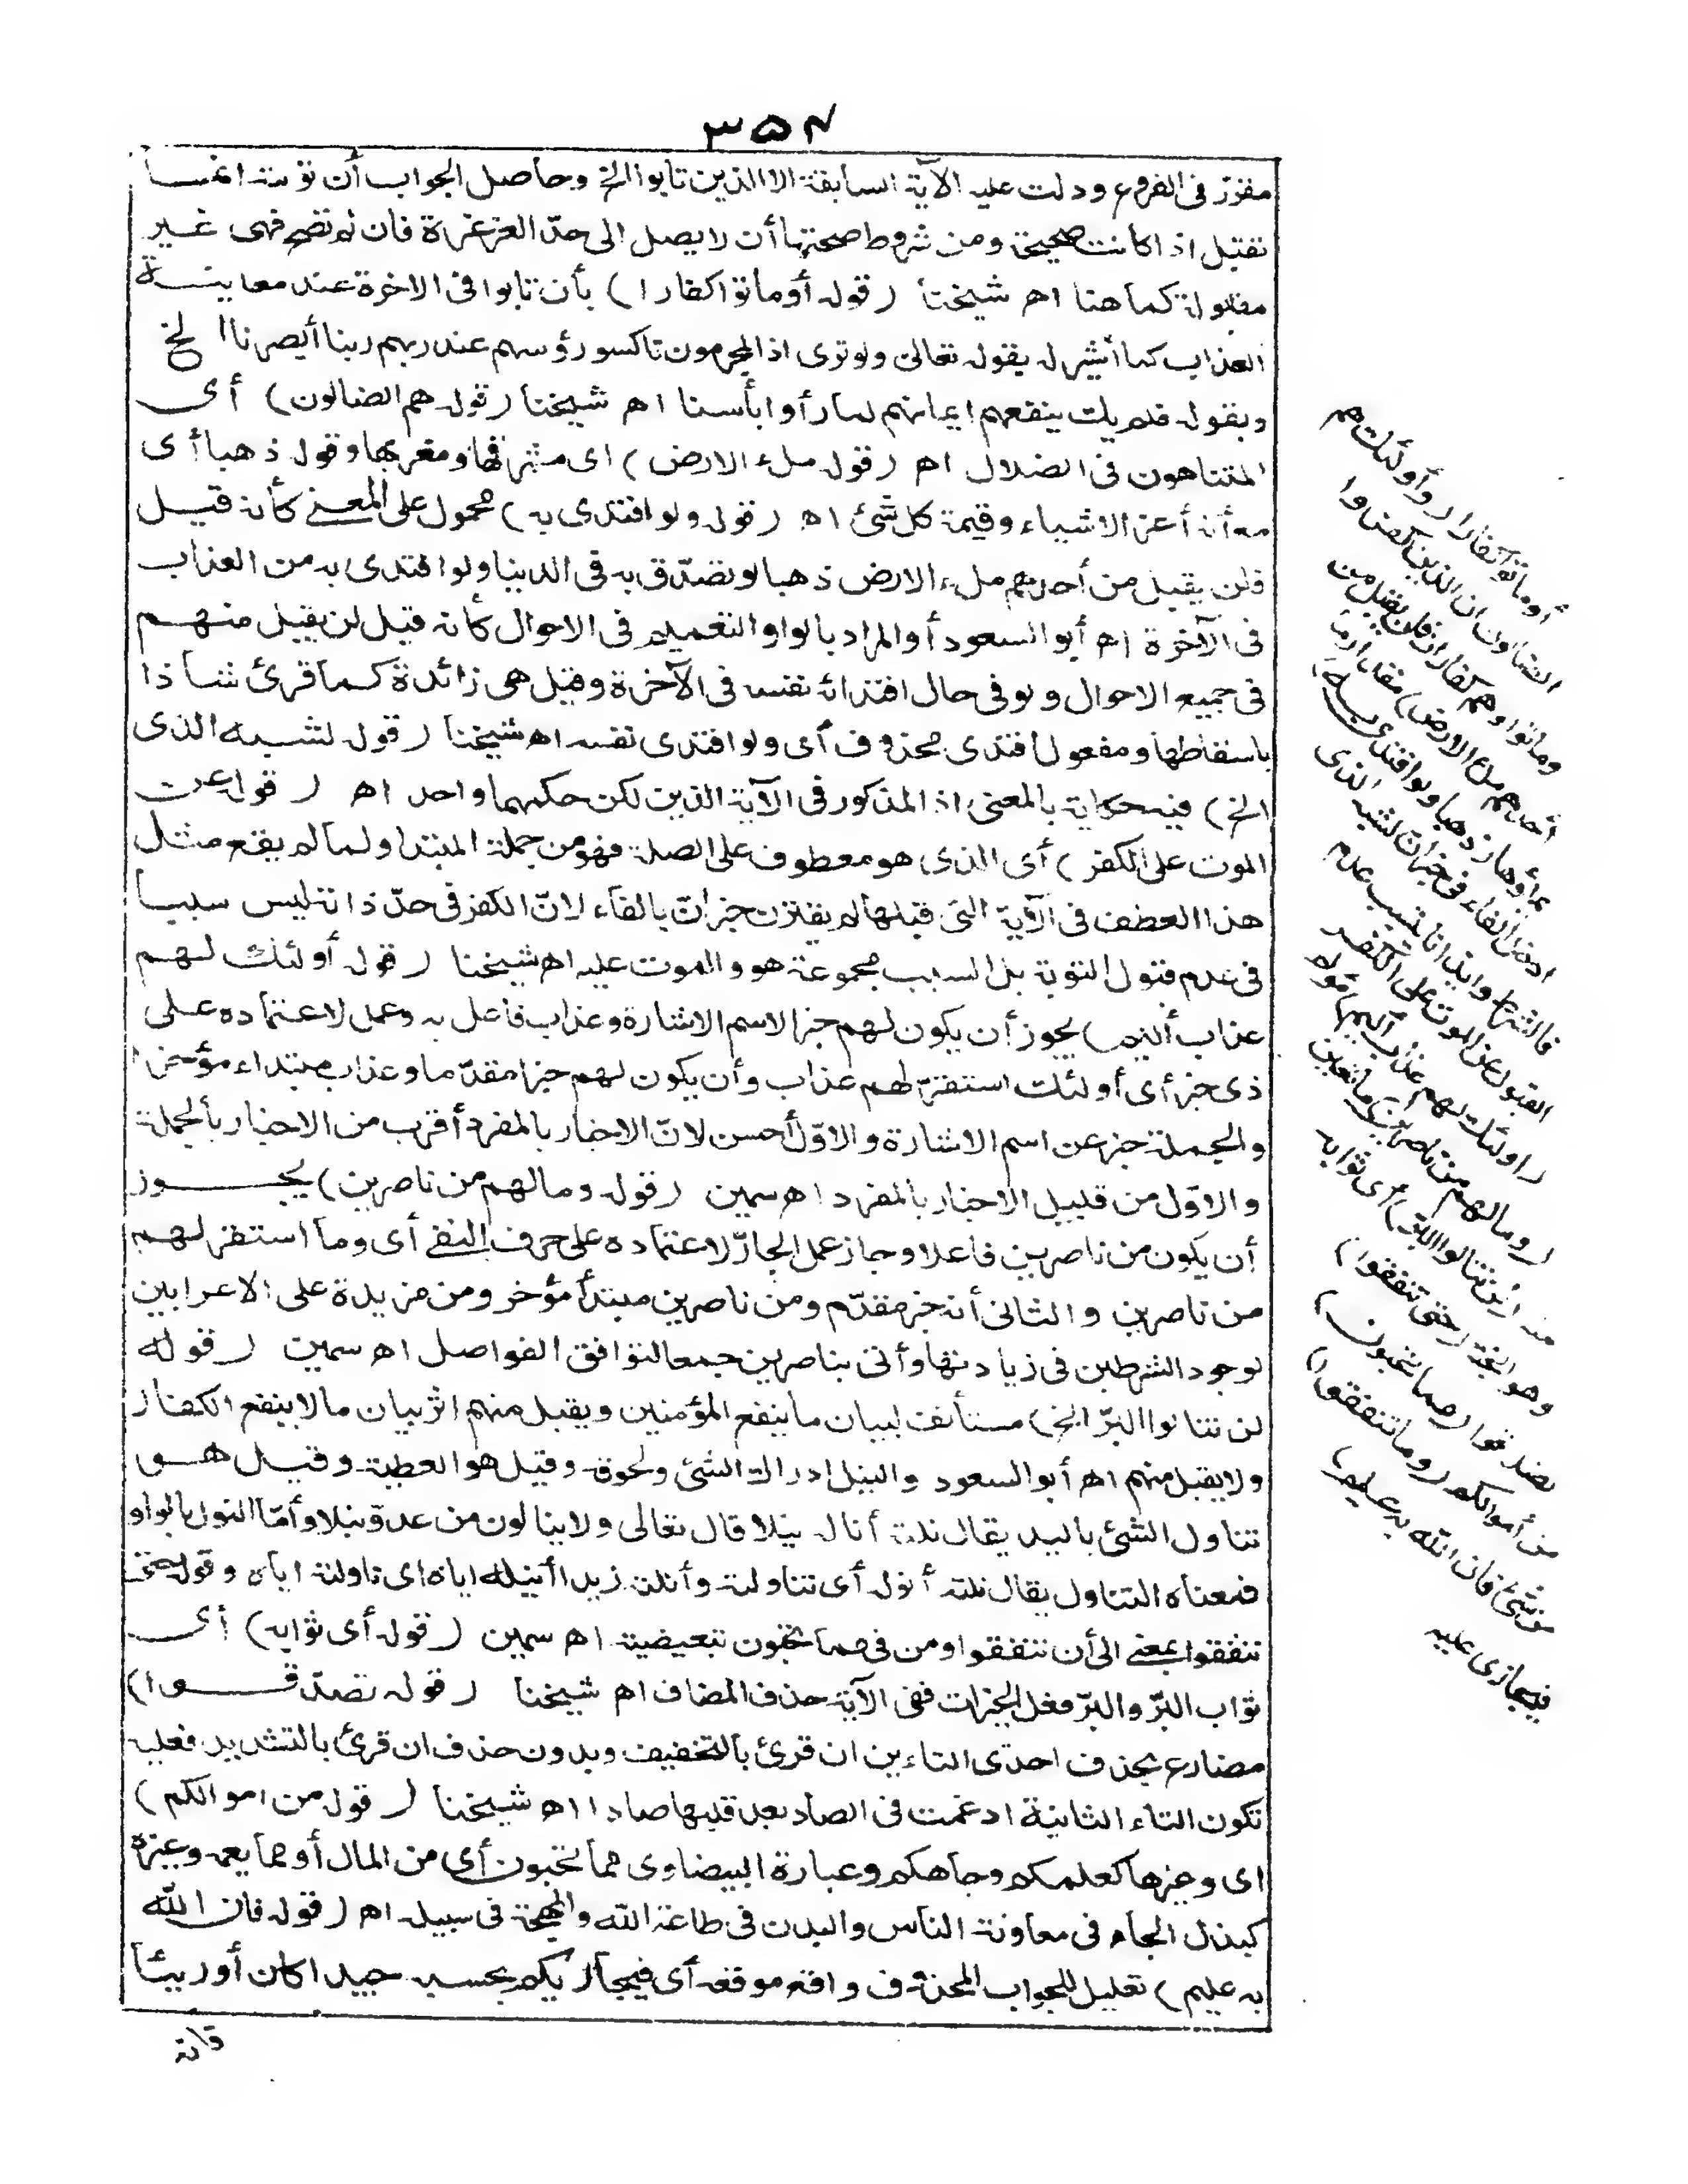 ٣٥٤
مقرّر فى الفروع ودلت عليه الآية السابقة الا الذين تابوا الخ وحاصل الجواب أن توبته انما
تقبل اذا كانت صحيحة ومن شروط صحتها أن لا يصل الى حدّ الغرغرة فان لم تصح فهى غير
مقبولة كما هنا اه شيخنا (قوله أو ماتوا كفارا) بأن تابوا فى الاخرة عند معاينة
العذاب كما أشير له بقوله تعالى ولو ترى اذ المجرمون ناكسو رؤسهم عند ربهم ربنا أبصرنا الخ
وبقوله فلم يك ينفعهم ايمانهم لما رأوا بأسنا اه شيخنا (قوله هم الضالون) أى
المتناهون فى الضلال اه (قوله ملء الارض) اى مشرقها ومغربها وقوله ذهبا أى
مع أنه أعز الاشياء وقيمة كل شئ اه (قوله ولو افتدى به) محمول على المعنى كأنه قيل
فلن يقبل من أحدهم ملء الارض ذهبا لو تصدّق به فى الدنيا ولو افتدى به من العذاب
فى الآخرة اه أبو السعود أو المراد بالواو التعميم فى الاحوال كأنه قيل لن يقبل منهم
فى جميع الاحوال ولو فى حال افتدائه نفسه فى الآخرة وقيل هى زائدة كما قرئ شاذا
باسقاطها ومفعول افتدى محذوف أى ولو افتدى نفسه اه شيخنا (قوله لشبه الذى
الخ) فيه حكاية بالمعنى اذ المذكور فى الآية الذين لكن حكمهما واحد اه (قوله عن
الموت على الكفر) أى الذى هو معطوف على الصلة فهو من جملة المبتدا ولما لم يقع مثل
هذا العطف فى الآية التى قبلها لم يقترن خبر انّ بالفاء لانّ الكفر فى حدّ ذاته ليس سببا
فى عدم قبول التوبة بل السبب مجموعه هو والموت عليه اه شيخنا (قوله أولئك لهم
عذاب أليم) يجوز أن يكون لهم خبرا لاسم الاشارة وعذاب فاعل به وعمل لاعتماده على
ذى خبر أى أولئك استقرّ لهم عذاب وأن يكون لهم خبرا مقدّما وعذاب مبتداء مؤخرا
والجملة خبر عن اسم الاشارة والاوّل أحسن لانّ الاخبار بالمفرد أقرب من الاخبار بالجملة
والاوّل من قبيل الاخبار بالمفرد اه سمين (قوله وما لهم من ناصرين) يجوز
أن يكون من ناصرين فاعلا وجاز عمل الجارّ لاعتماده على حرف النفى أى وما استقر لهم
من ناصرين والثانى أنه خبر مقدّم ومن ناصرين مبتدأ مؤخر ومن مزيدة على الاعرابين
لوجود الشرطين فى زيادتها وأتى بناصرين جمعا لتوافق الفواصل اه سمين (قوله
لن تنالوا البرّ الخ) مستأنف لبيان ما ينفع المؤمنين ويقبل منهم اثر بيان ما لا ينفع الكفار
ولا يقبل منهم اه أبو السعود والنيل ادراك الشئ ولحوقه وقيل هو العطية وقيل هو
تناول الشئ باليد يقال نلته أناله نيلا قال تعالى ولا ينالون من عدوّ نيلا وأمّا النول بالواو
فمعناه التناول يقال نلته أنوله أى تناولته وأنلته زيدا أنيله اياه اى ناولته اياه وقوله حتى
تنفقوا بمعنى الى أن تنفقوا ومن فى مما تحبون تبعيضية اه سمين (قوله أى ثوابه) أى
ثواب البرّ والبرّ فعل الخيرات ففى الآية حذف المضاف اه شيخنا (قوله تصدّقوا)
مضارع بحذف احدى التاءين ان قرئ بالتخفيف وبدون حذف ان قرئ بالتشديد فعليه
تكون التاء الثانية ادغمت فى الصاد بعد قلبها صادا اه شيخنا (قوله من اموالكم)
اى وغيرها كعلمكم وجاهكم وعبارة البيضاوى مما تحبون أى من المال أو مما يعمه وغيره
كبذل الجاه فى معاونة الناس والبدن فى طاعة الله والمهجة فى سبيله اه (قوله فان الله
به عليم) تعليل للجواب المحذوف واقع موقعه أى فيجازيكم بحسبه جيدا كان أو رديئا
فانه
أو ماتوا كفارا (وأولئك هم
الضالون ان الذين كفروا
وماتوا وهم كفار فلن يقبل من
أحدهم ملء الارض) مقدار ما
يملؤها (ذهبا ولو افتدى به)
ادخل الفاء فى خبر انّ لشبه الذى
بالشرط وايذانا بتسبب عدم
القبول عن الموت على الكفر
(أولئك لهم عذاب أليم) مؤلم
(وما لهم من ناصرين) مانعين
منه (لن تنالوا البرّ) أى ثوابه
وهو الجنة (حتى تنفقوا)
تصدقوا (مما تحبون)
من أموالكم (وما تنفقوا
من شئ فان الله به عليم)
فيجازى عليه